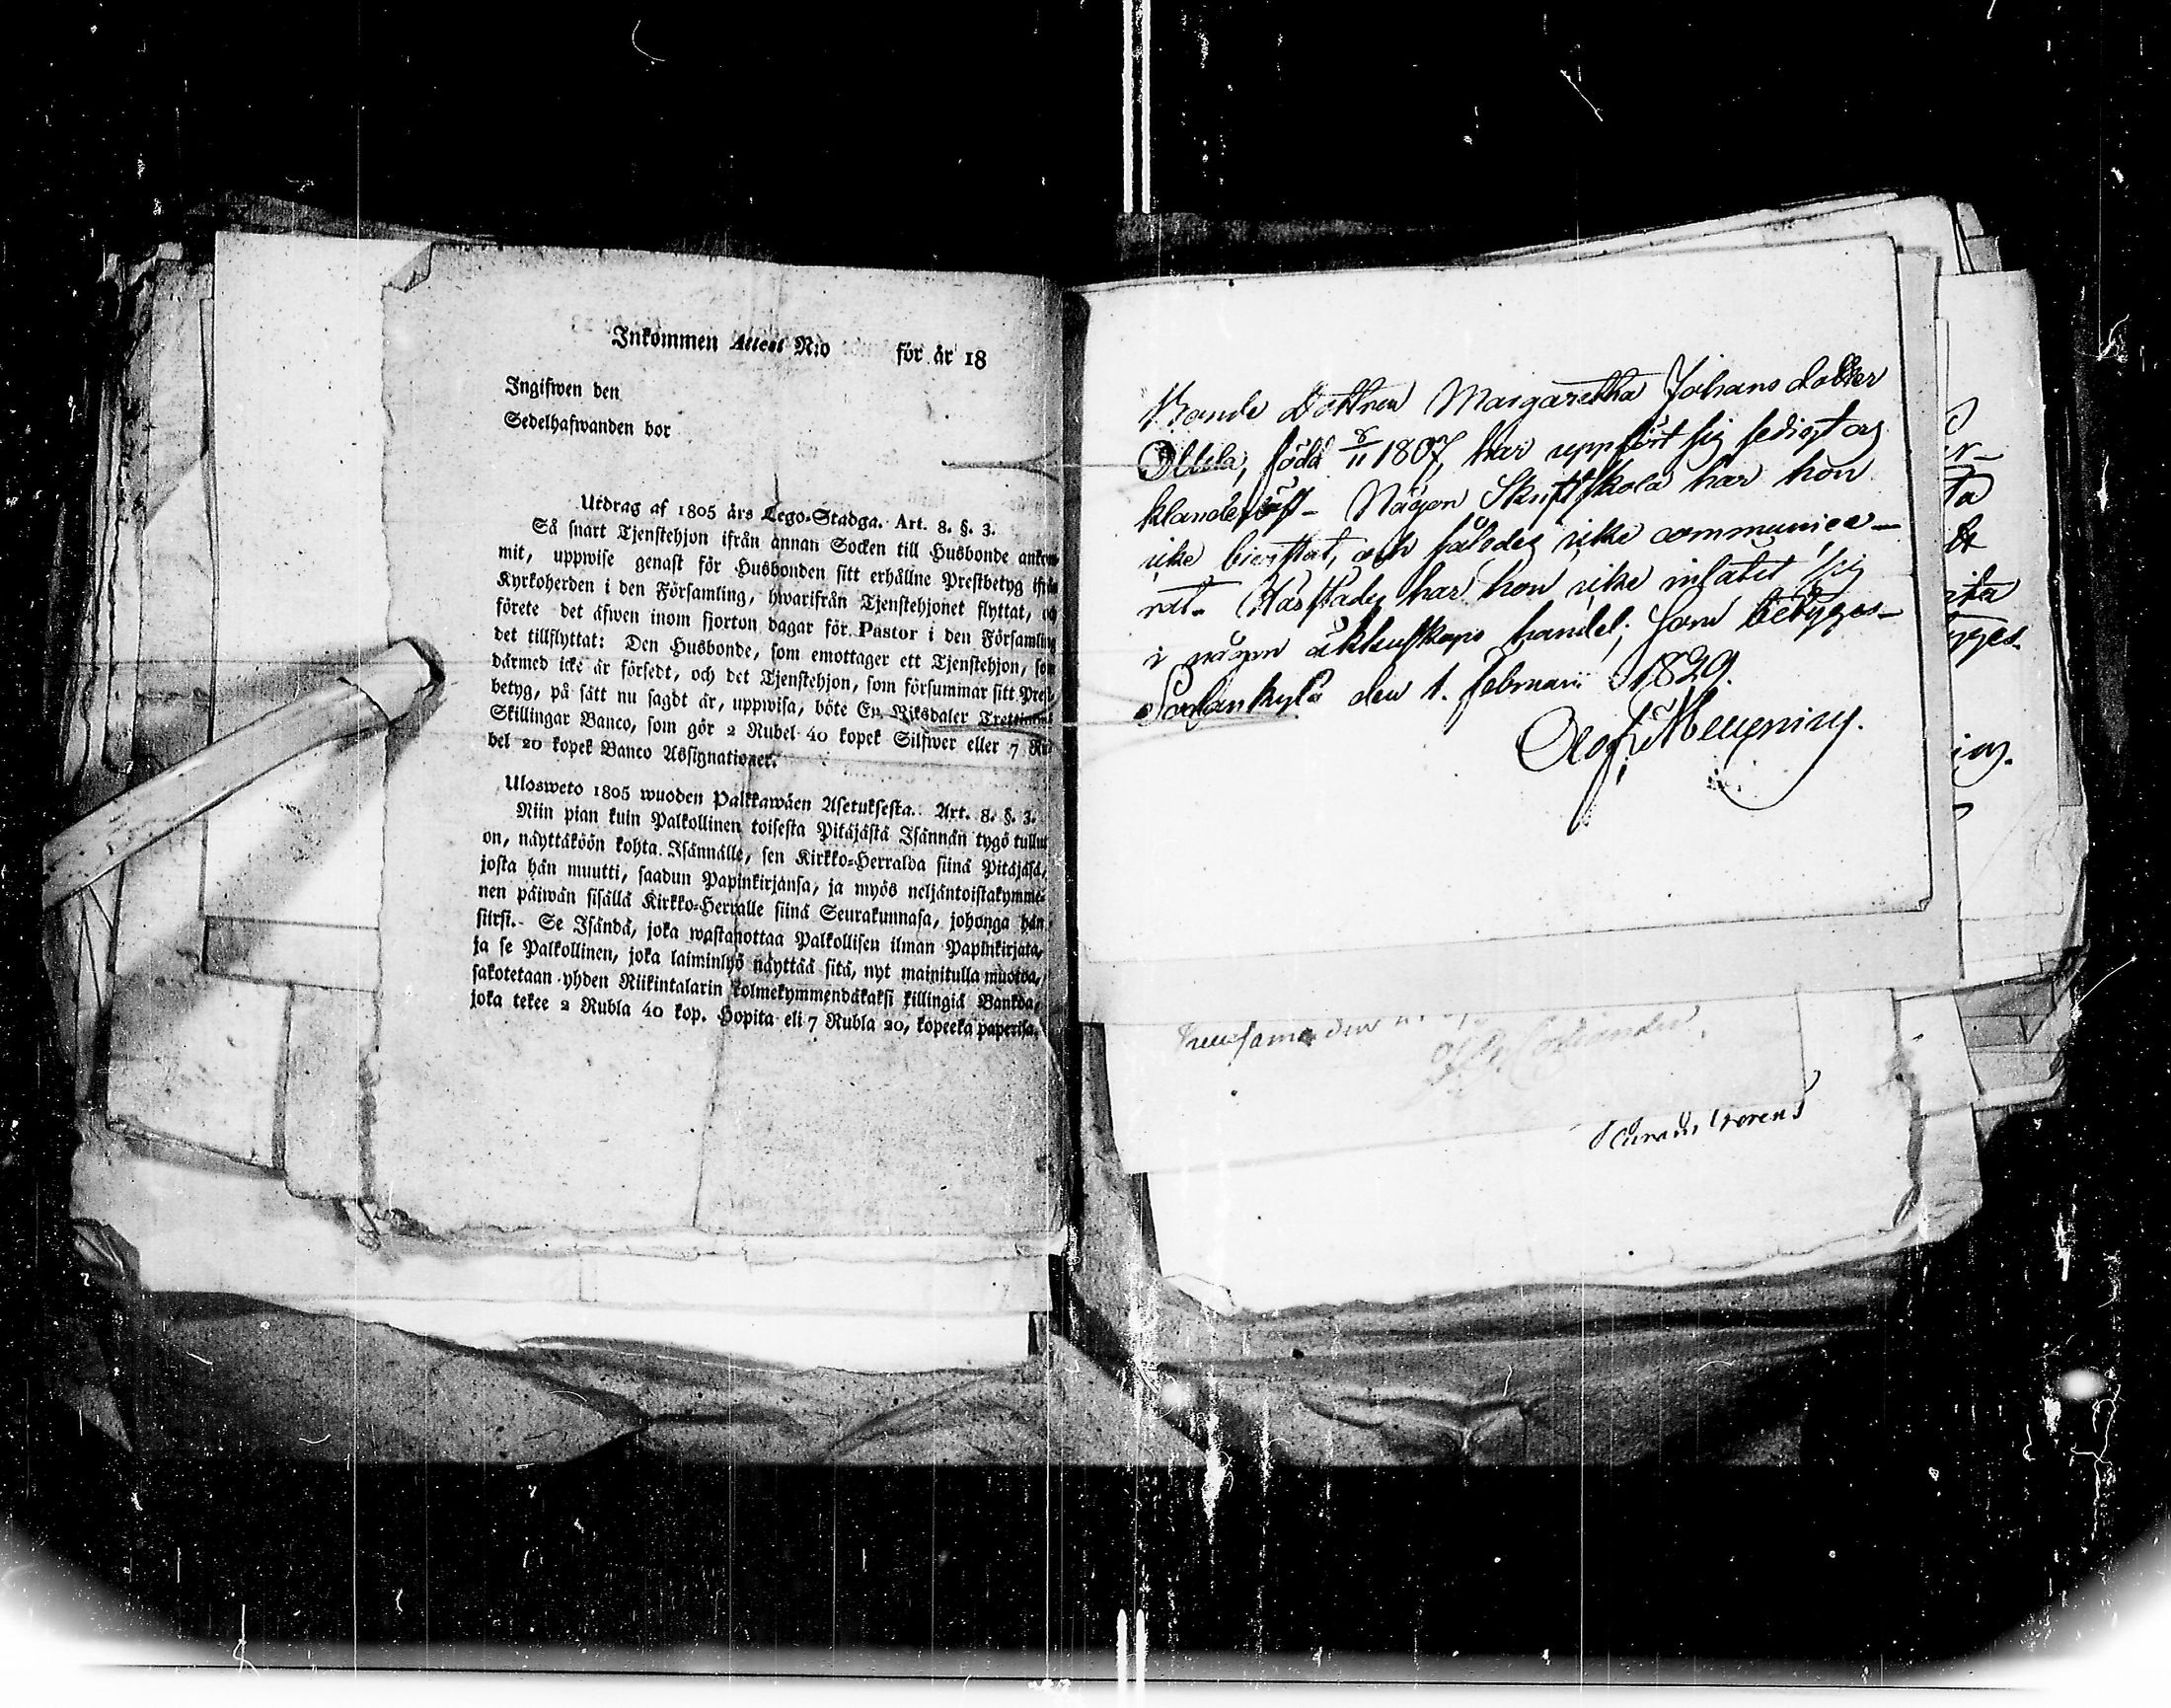 Inkommen Attest N:o för år 18
Ingifwen den
Sedelhafwanden bor
Utdrag af 1805 års Lego-Stadga. Art. 8. §. 3.
Så snart Tjenstehjon ifrån annan Socken till Husbonde ankom-
mit, uppwise genast för Husbonden sitt erhållne Prestbetyg ifrån
Kyrkoherden i den Församling, hwarifrån Tjenstehjonet flyttat, och
förete det äfwen inom fjorton dagar för Pastor i den Församling
det tillflyttat: Den Husbonde, som emottager ett Tjenstehjon, som
därmed icke är försedt, och det Tjenstehjon, som försummar sitt Prest-
betyg, på sätt nu sagdt är, uppwisa, böte En Riksdaler Trettiotwå
Skillingar Banco, som gör 2 Rubel 40 kopek Silfwer eller 7 Ru-
bel 20 kopek Banco Assignationer.
Ulosweto 1805 wuoden Palkkawäen Asetuksesta. Art. 8. §. 3.
Niin pian kuin Palkollinen toisesta Pitäjästä Isännän tygö tullut
on, näyttäköön kohta Isännälle, sen Kirkko-Herralda siinä Pitäjäsä,
josta hän muutti, saadun Papinkirjansa, ja myös neljäntoistakymme-
nen päiwän sisällä Kirkko-Herralle siinä Seurakunnasa, johonga hän
siirsi. Se Isändä, joka wastanottaa Palkollisen ilman Papinkirjata,
ja se Palkollinen, joka laiminlyö näyttää sitä, nyt mainitulla muotoa,
sakotetaan yhden Riikintalarin kolmekymmendäkaksi killingiä Bankoa,
joka tekee 2 Rubla 40 kop. Hopita eli 7 Rubla 20, kopeeka paperisa.
Bonde Dottren Margaretha Johansdotter
född 8/11 1807, har uppfört sig sedigt og
klanderlöst. Någon Skriftskola har hon
icke bevistat, och således icke communice-
rat. Härstädes har hon icke inlåtit sig
i någon äktenskaps handel; som betygas.
Sodankylä den 1. Februari 1829.